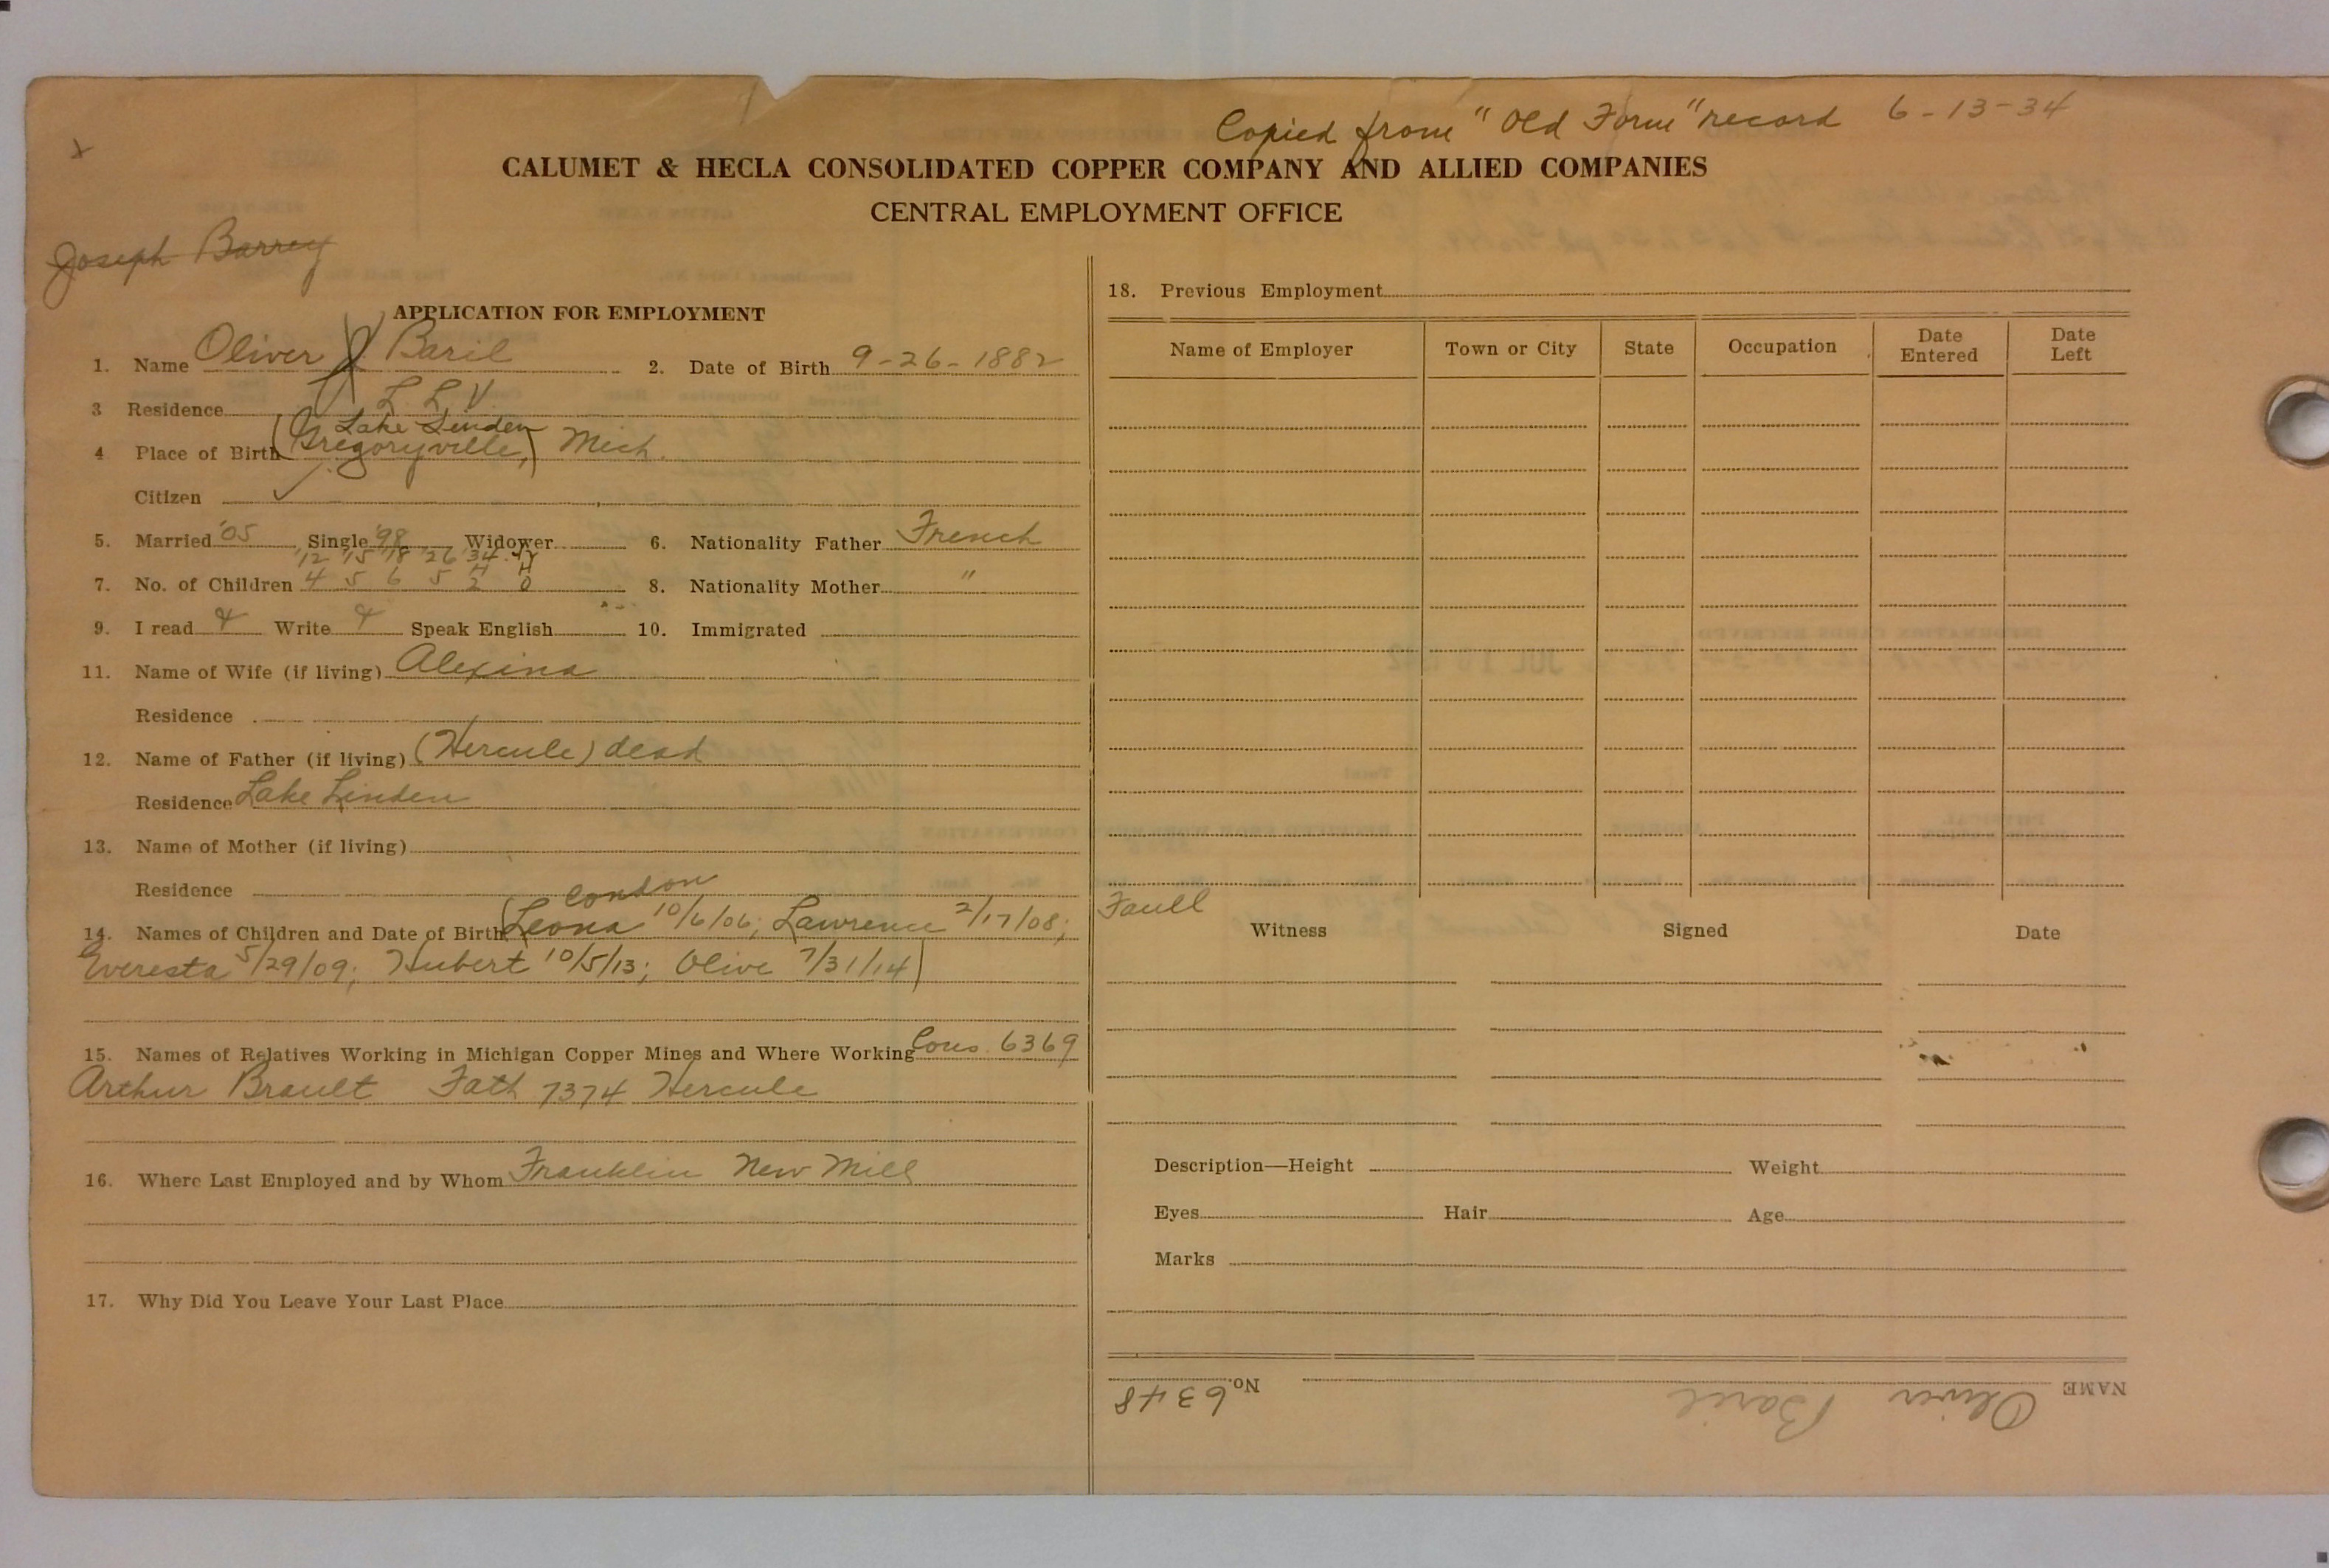 Copied from "Old Form" record 6-13-34
CALUMET & HECLA CONSOLIDATED COPPER COMPANY AND ALLIED COMPANIES
CENTRAL EMPLOYMENT OFFICE
Joseph Barrey
APPLICATION FOR EMPLOYMENT
1. Name Oliver J. Baril 2. Date of Birth 9-26-1882
3 Residence L. L. V.
Lake Linden
4 Place of Birth (Gregoryville,) Mich.
Citizen ✓
5. Married '05 Single '98 Widower
'12 '15 '18 '26 '34
6. Nationality Father French
7. No. of Children 4 5 6 5 2 0 8. Nationality Mother "
9. I read Write Speak English 10. Immigrated
11. Name of Wife (if living) Alexina
Residence
12. Name of Father (if living) (Hercule) dead
Residence Lake Linden
13. Name of Mother (if living)
Residence
Condon
14. Names of Children and Date of Birth (Leona 10/6/06; Lawrence 2/17/08;
Everesta 5/29/09; Hubert 10/5/13; Olive 7/31/14)
15. Names of Relatives Working in Michigan Copper Mines and Where Working Cous. 6369
Arthur Brault Fath 7374 Hercule
16. Where Last Employed and by Whom Franklin New Mill
17. Why Did You Leave Your Last Place
18. Previous Employment
Name of Employer Town or City State Occupation Date Entered Date Left
Faull
Witness Signed Date
Description—Height Weight
Eyes Hair Age
Marks
NAME Oliver Baril No. 6348